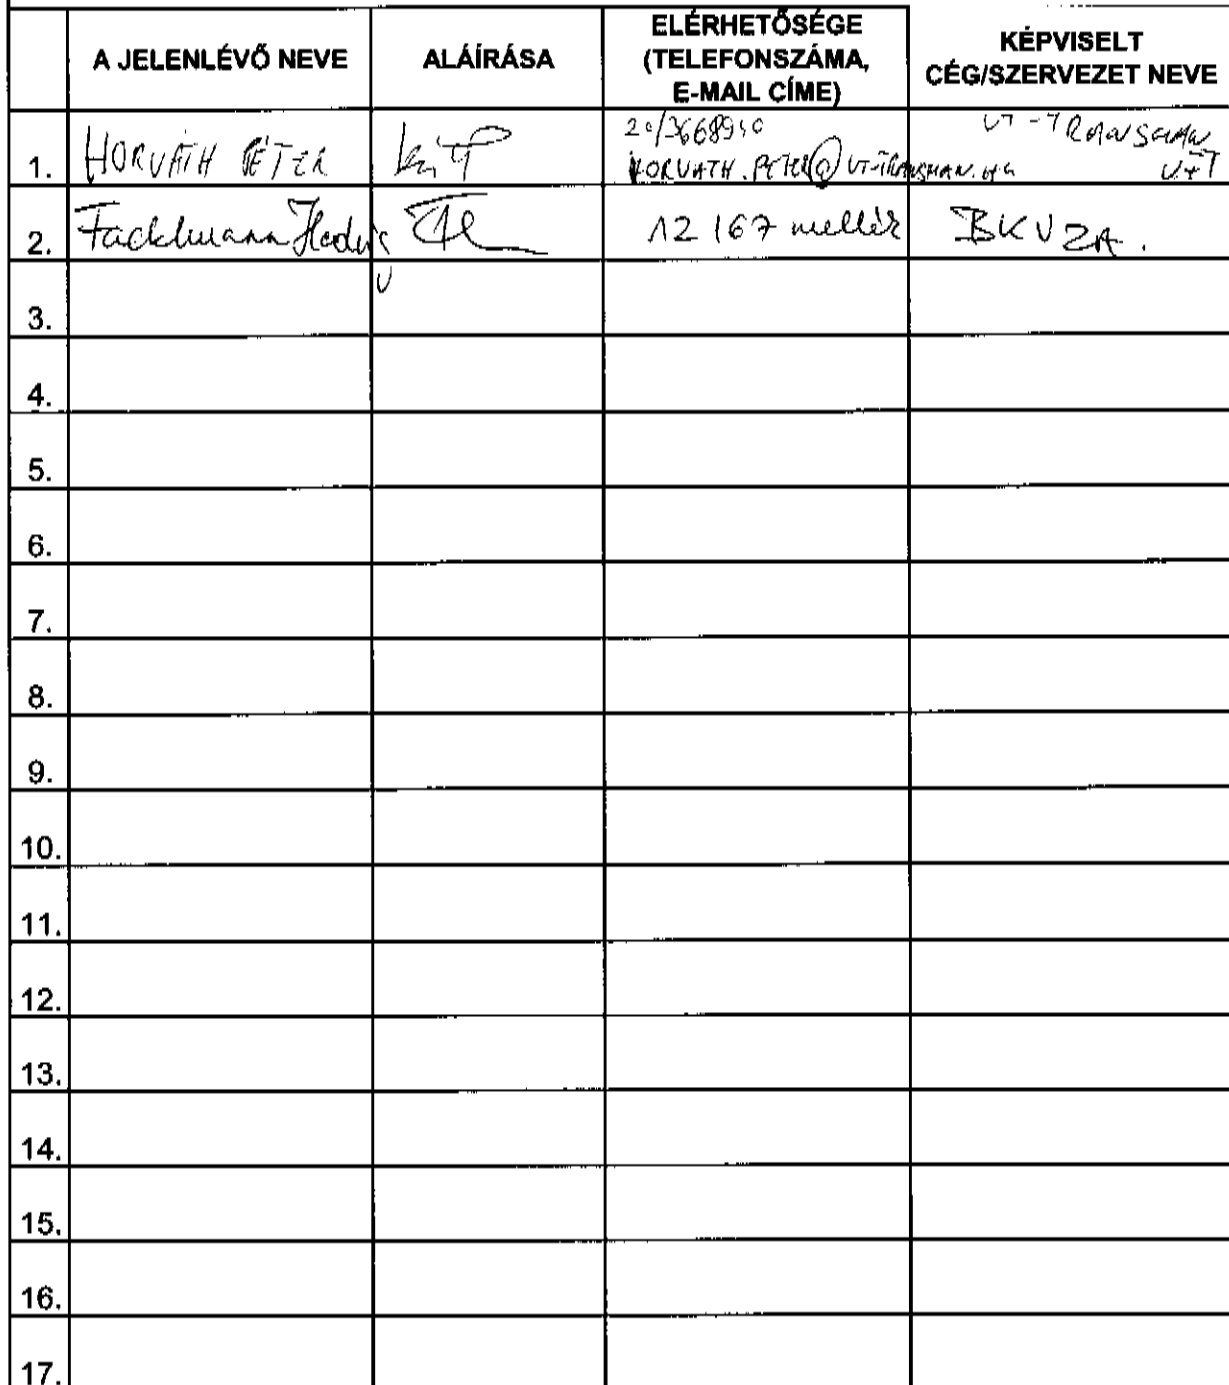 A JELENLÉVŐ NEVE
ALÁÍRÁSA
ELÉRHETŐSÉGE
(TELEFONSZÁMA,
E-MAIL CÍME)
KÉPVISELT
CÉG/SZERVEZET NEVE
1.
HORVÁTH PÉTER
20/3668950
HORVATH.PETER@VT-TRANSMAN.HU
VT-TRANSMAN
2.
Fackelmann Hedvig
12 167 mellék
BKV ZR.
3.
4.
5.
6.
7.
8.
9.
10.
11.
12.
13.
14.
15.
16.
17.